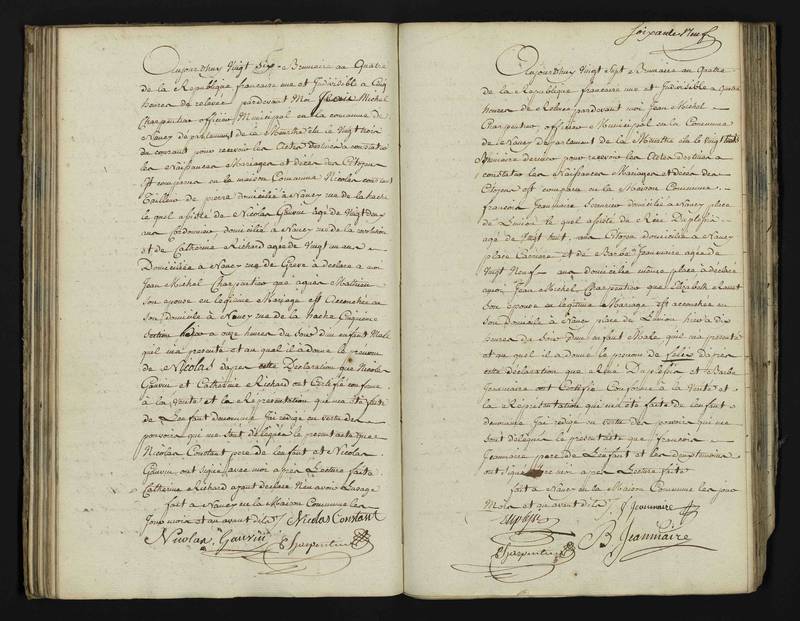 Aujourdhuy Vingt Six Brumaire an Quatre
de la Republique francaise une et Indivisible a Cinq
heures de relevée pardevant Moi Jean Michel
Charpentier officier Municipal en la commune de
Nancy departement de la Meurthe élu le Vingt trois
du courant pour recevoir les Actes destinés à constater
les Naissances Mariages et décès des Citoyens
Est comparu en la maison Commune Nicolas constant
Tailleur de pierre domicilié à Nancy rue de la hache
le quel assisté de Nicolas Gauvin âgé de Vingt deux
ans Cordonnier domicilié à Nancy rue de la
et de Catherine Richard agée de Vingt un ans
Domiciliée à Nancy rue de Grève à déclaré a moi
Jean Michel Charpentier que agnes Mathieu
Son epouse en légitime Mariage est Accouchée en
Son Domicile à Nancy rue de la hache Cinquième
Section hier a onze heures du Soir d'un enfant Male
quil ma presenté et au quel il a donné le prenom
de Nicolas d'après cette Declaration que Nicolas
Gauvin et Catherine Richard ont Certifié conforme
à la Verité et la Représentation qui ma été faite
de L'enfant denommé Jai rédigé en vertu des
pouvoirs qui me sont délégués le present acte que
Nicolas Constant pere de l'enfant et Nicolas
Gauvin ont signé avec moi après Lecture faite
Catherine Richard ayant declaré N'en avoir L'usage
fait a Nancy en la Maison Commune les
Jour mois et an avant dits Nicolas Constant
Nicolas Gauvin Charpentier
Soixante Neuf
Aujourdhuy Vingt Sept Brumaire an Quatre
de la Republique francaise une et Indivisible a quatre
heures de Relevée pardevant moi Jean Michel
Charpentier officier Municipal en la Commune
de Nancy Département de la Meurthe élu le Vingt trois
Brumaire dernier pour recevoir les Actes destinés a
constater les Naissances Mariages et décès des
Citoyens est comparu en la Maison Commune
francois Jeanmaire domicilié à Nancy place
de L'union le quel assisté de René Duplessis
agé de Vingt huit ans Citoyen domicilié a Nancy
place Carrière et de Barbe Jeanmaire agée de
Vingt Neuf ans domiciliée même place à déclaré
a moi Jean Michel Charpentier que Elizabeth
Son épouse en légitime Mariage est accouchée en
Son domicile à Nancy place de L'union hier a dix
heures du Soir d'un enfant Male quil ma presenté
et au quel il a donné le prenom de felix d'après
cette déclaration que René Duplessis et Barbe
Jeanmaire ont Certifié Conforme à la Verité et
la Représentation qui ma été faite de l'enfant
denommé Jai rédigé en vertu des pouvoirs qui me
sont délégués le present acte que francois
Jeanmaire pere de L'enfant et les
ont signé avec moi après Lecture faite
fait a Nancy en la Maison Commune les jour
Mois et an avant dits J Jeanmaire
Charpentier B Jeanmaire